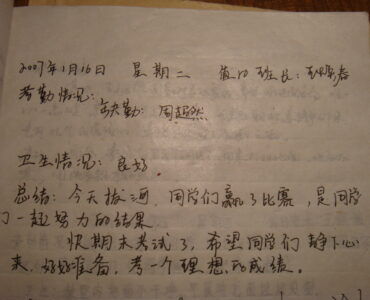 2007年1月16日 星期二 值日班长:
考勤情况:
缺勤:周超然
卫生情况:良好。
总结:今天拔河,同学们赢了比赛,是同学
们一起努力的结果
快期末考试了,希望同学们静下心
来,好好准备,考一个理想的成绩。